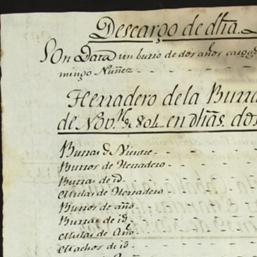 Descargo de dha.
Son Data un burro de dos años cargo
mingo Nuñez
Herradero de la Burra
de Nov.re 804. en dhas. do
Burras de Vientre
Burros de Herradero
Burras de id.
Mulas de Herradero
Burros de año
Burras de id.
Mulas de Año
Machos de id.